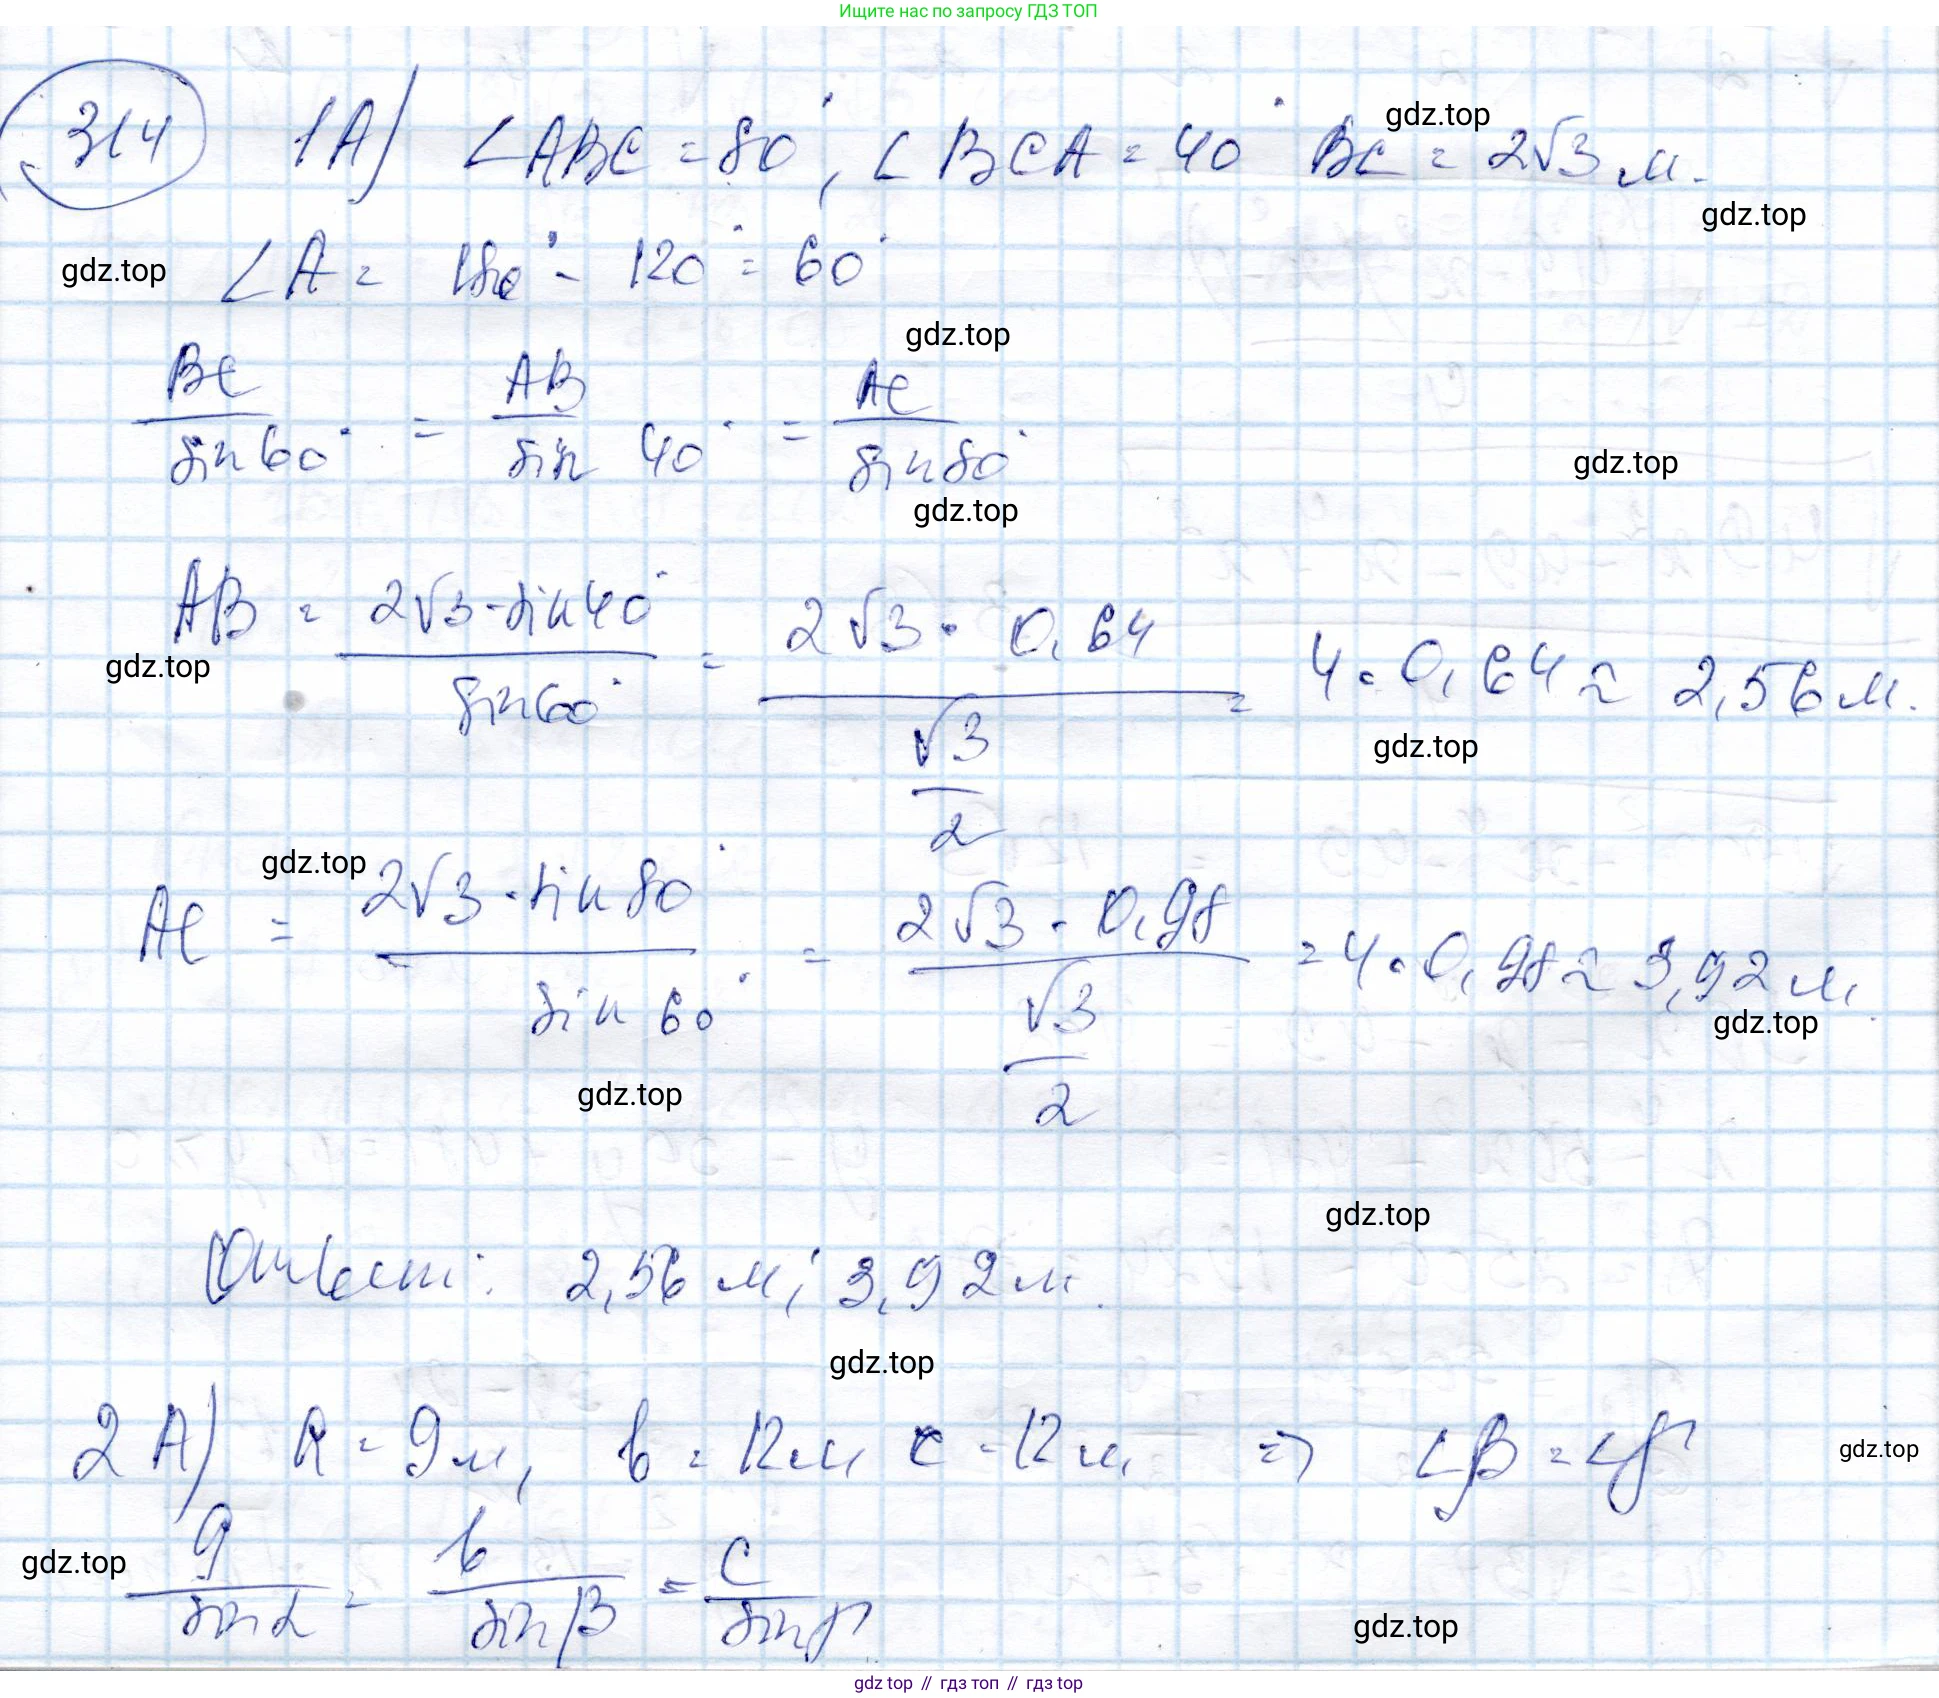 Ищите нас по запросу ГДЗ ТОП
314 1A) ∠ABC = 80°, ∠BCA = 40° BC = 2√3 м.
gdz.top
gdz.top
gdz.top
∠A = 180° - 120° = 60°
gdz.top
BC/sin60° = AB/sin 40° = AC/sin80°
gdz.top
gdz.top
AB = 2√3·sin40°/sin60° = 2√3·0,64/(√3/2) = 4·0,64 ≈ 2,56 м.
gdz.top
gdz.top
gdz.top
AC = 2√3·sin80°/sin 60° = 2√3·0,98/(√3/2) = 4·0,98 ≈ 3,92 м.
gdz.top
gdz.top
gdz.top
Ответ: 2,56 м; 3,92 м.
gdz.top
2A) a = 9 м, b = 12 м, c = 12 м, => ∠β = ∠γ
gdz.top
gdz.top
a/sinα = b/sinβ = c/sinγ
gdz.top
gdz.top // гдз топ // гдз top